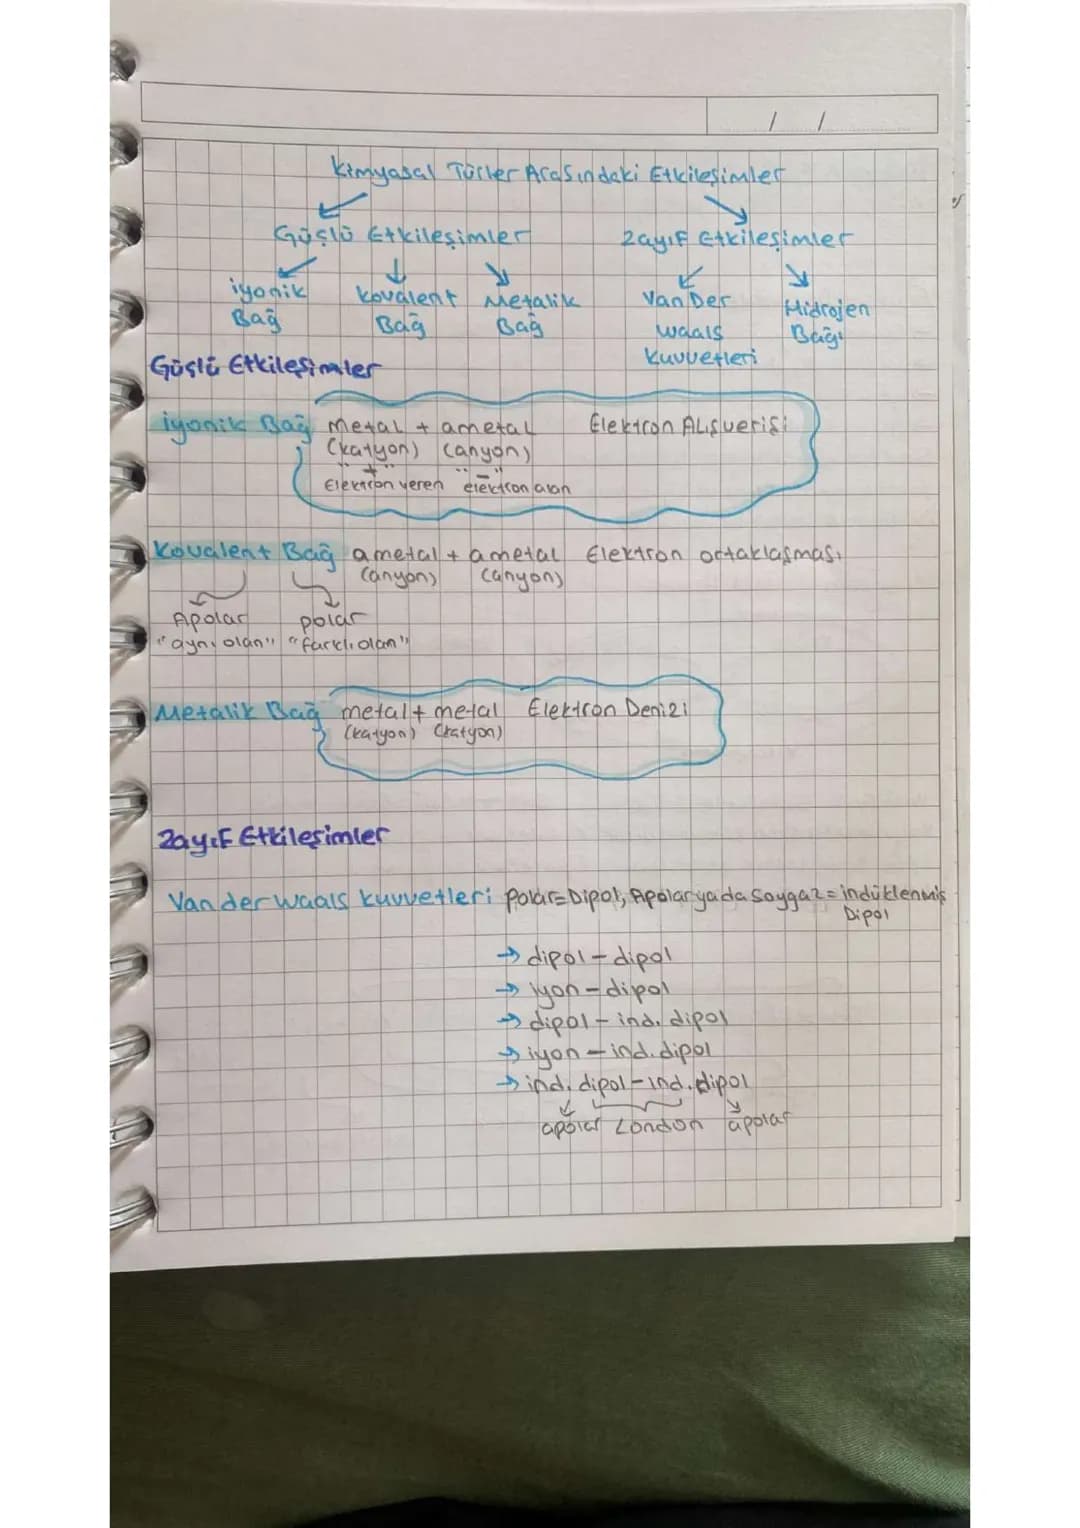 / /
Kimyasal Türler Arasındaki Etkileşimler
Güçlü Etkileşimler Zayıf Etkileşimler
iyonik Bağ
Kovalent Bağ
Metalik Bağ
Van Der Waals Kuvvetleri
Hidrojen Bağı
Güçlü Etkileşimler
iyonik Bağ metal + ametal Elektron Alışverişi
(katyon) (anyon)
"+" "-"
Elektron veren elektron alan
Kovalent Bağ ametal + ametal Elektron ortaklaşması
(anyon) (anyon)
Apolar polar
"aynı olan" "farklı olan"
Metalik Bağ metal + metal Elektron Denizi
(katyon) (katyon)
Zayıf Etkileşimler
Van der waals kuvvetleri polar=Dipol, Apolar ya da Soygaz=indüklenmiş
Dipol
→ dipol - dipol
→ iyon - dipol
→ dipol - ind. dipol
→ iyon - ind. dipol
→ ind. dipol - ind. dipol
apolar London apolar